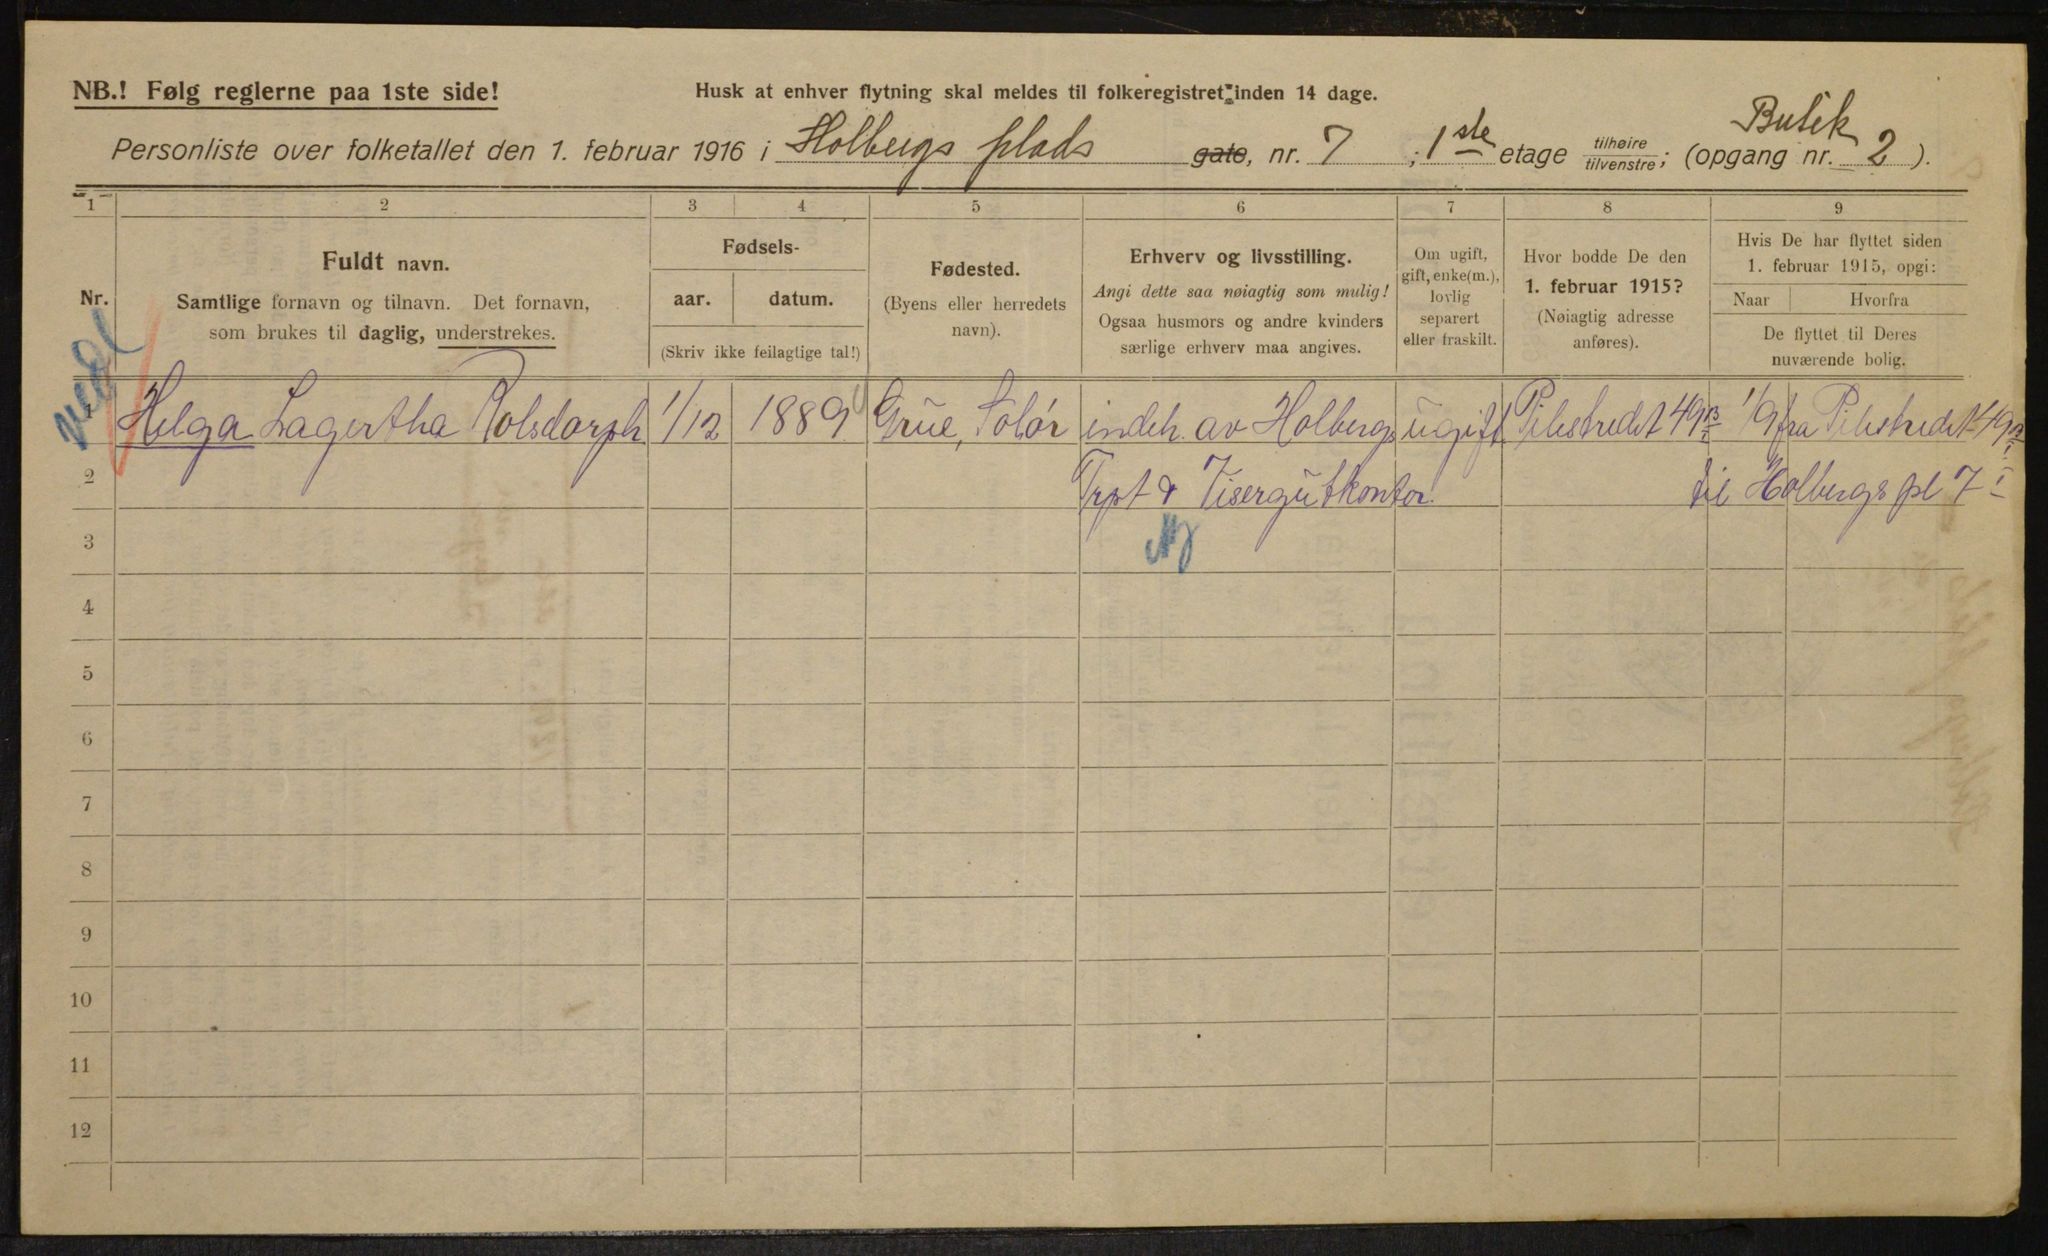 NB.! Følg reglerne paa 1ste side!
Husk at enhver flytning skal meldes til folkeregistret inden 14 dage.
Butik
Personliste over folketallet den 1. februar 1916 i Holbergs plads gate, nr. 7; 1ste etage tilhøire/tilvenstre; (opgang nr. 2).
1 2 3 4 5 6 7 8 9
Nr.
Fuldt navn.
Samtlige fornavn og tilnavn. Det fornavn,
som brukes til daglig, understrekes.
Fødsels-
aar. datum.
(Skriv ikke feilagtige tal!)
Fødested.
(Byens eller herredets
navn).
Erhverv og livsstilling.
Angi dette saa nøiagtig som mulig!
Ogsaa husmors og andre kvinders
særlige erhverv maa angives.
Om ugift,
gift, enke(m.),
lovlig
separert
eller fraskilt.
Hvor bodde De den
1. februar 1915?
(Nøiagtig adresse
anføres).
Hvis De har flyttet siden
1. februar 1915, opgi:
Naar Hvorfra
De flyttet til Deres
nuværende bolig.
1 Helga Lagertha Rolsdorph 1/12 1889 Grue, Solør indeh. av Holbergs ugift Pilestredet 49 1/9 fra Pilestredet 49
2 Trpt & Visergutkontor. til Holbergs pl 7 I
3
4
5
6
7
8
9
10
11
12